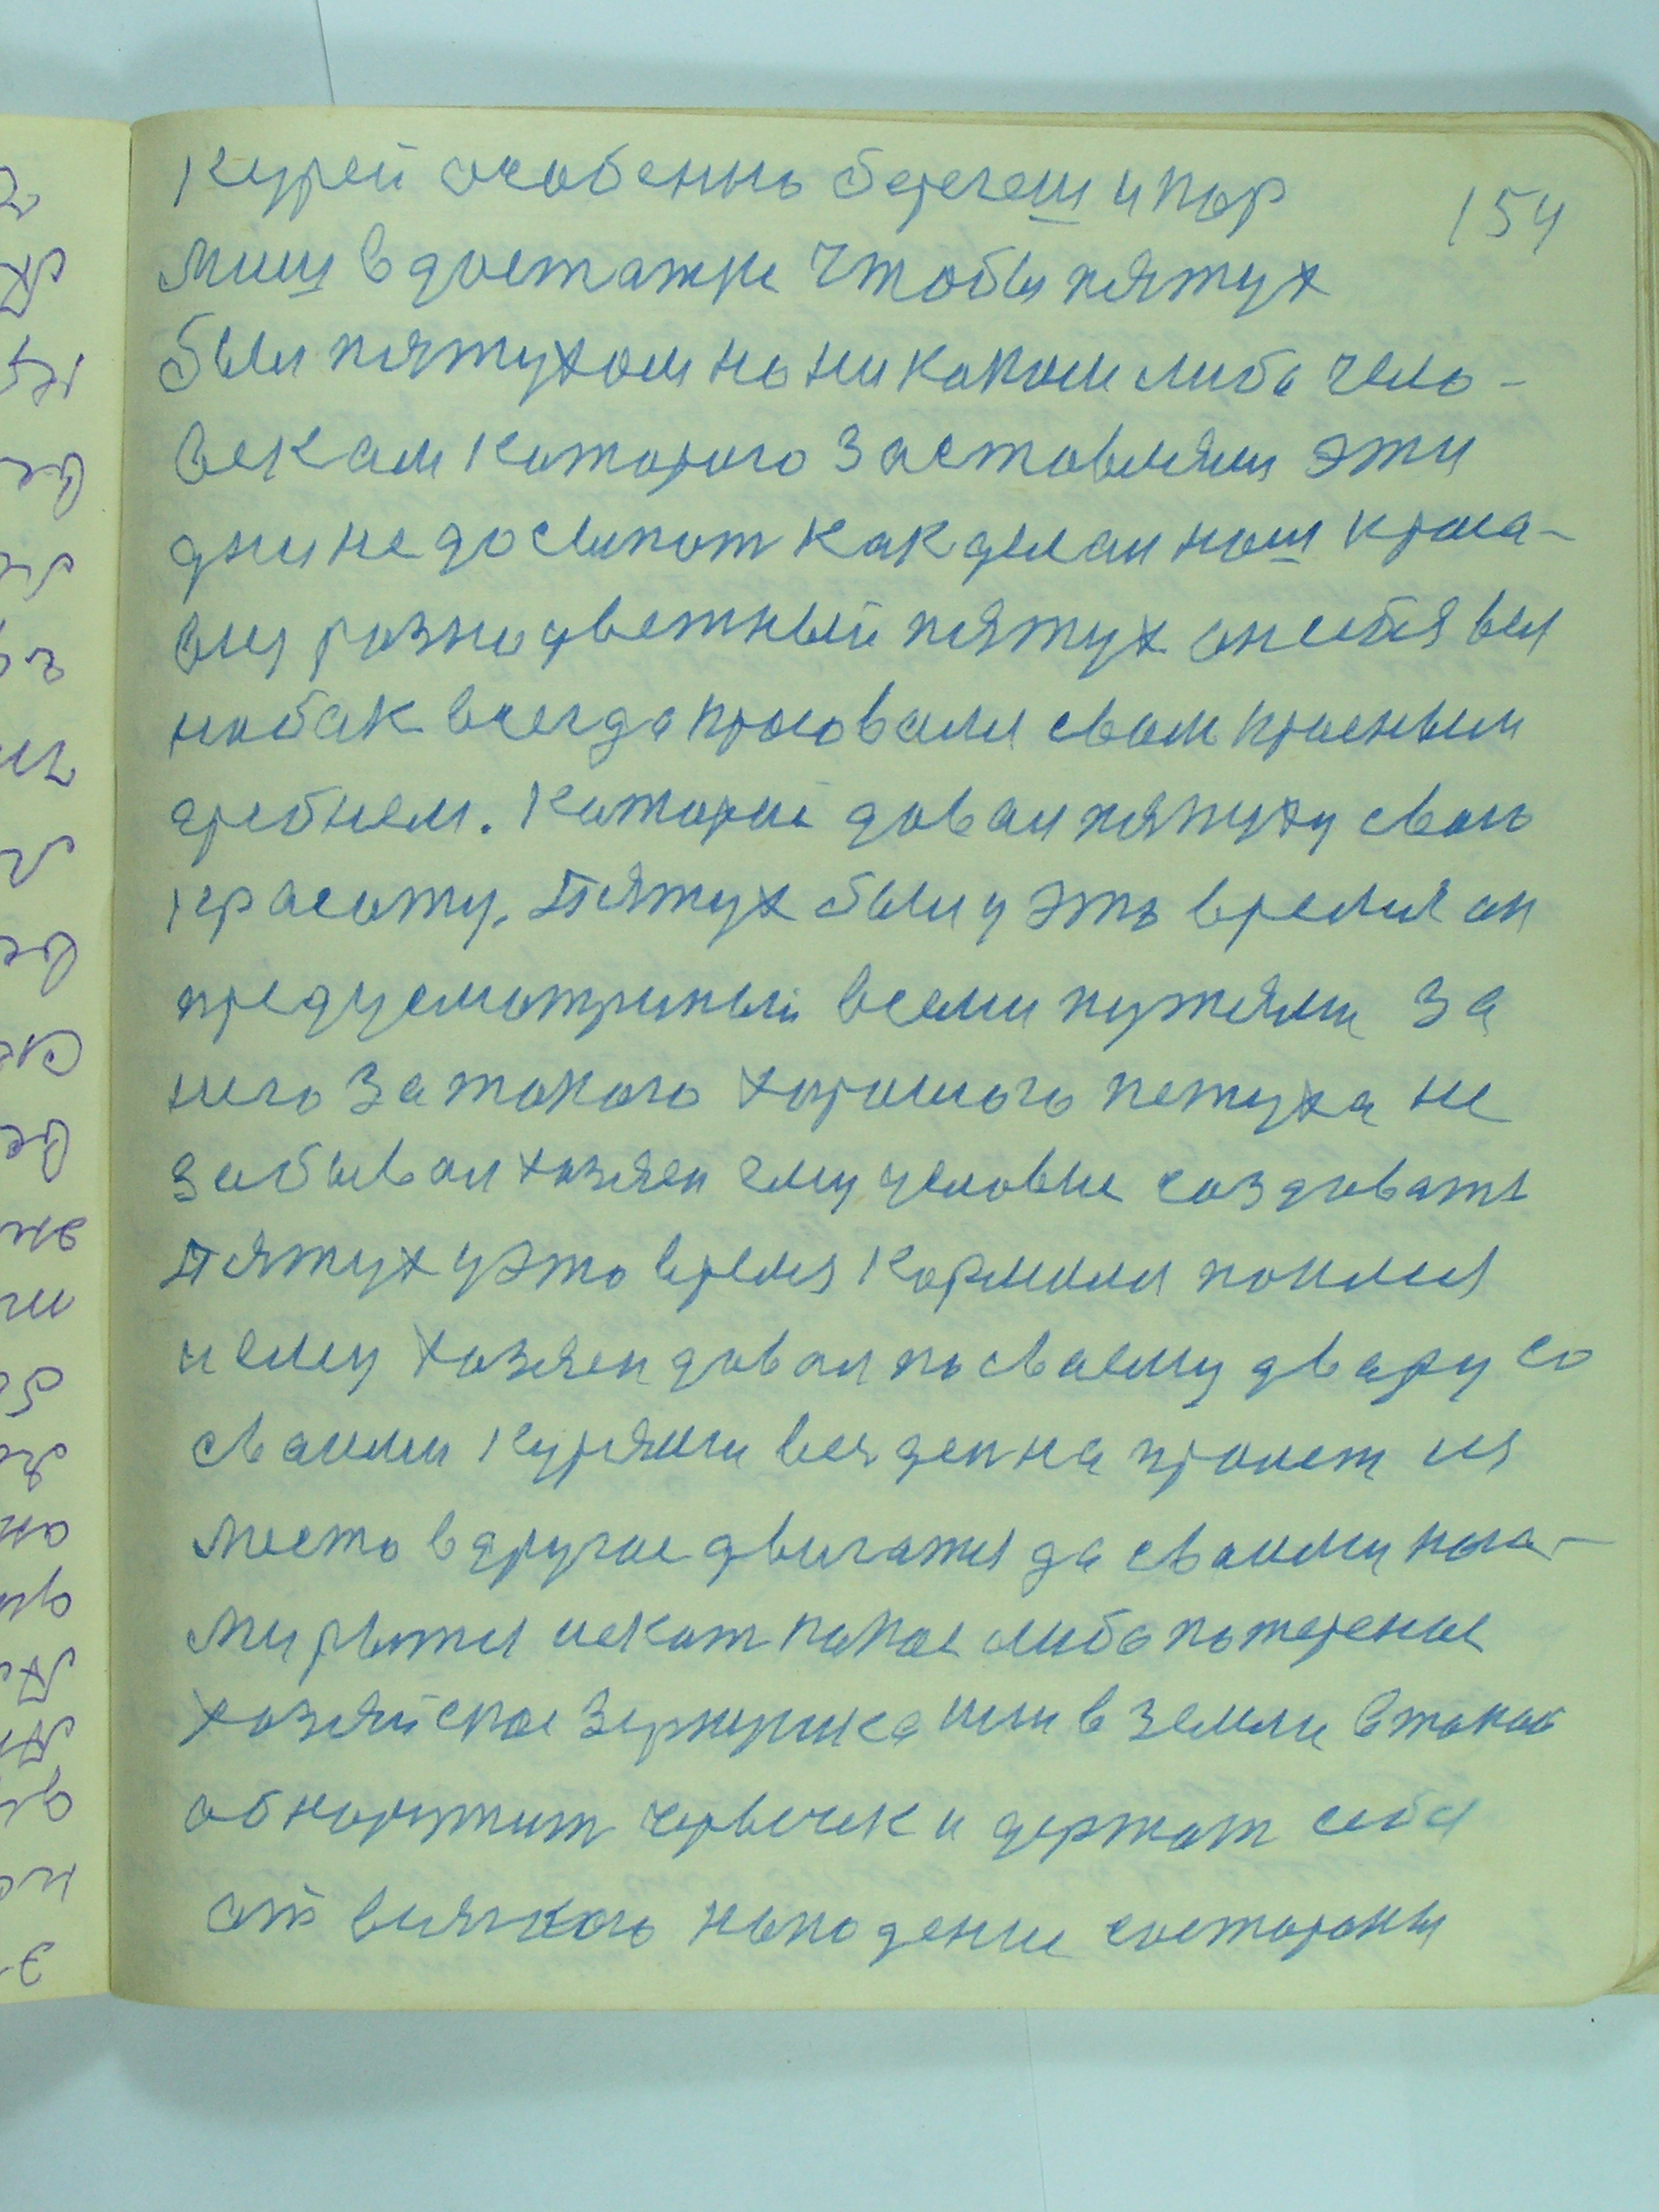 154
Курей особенно берегеш и кор
миш в достатке чтобы пятух
был пятухом но ни каком либо чело-
векам которого заставляли эти
дни не досыпат как делал наш краса-
вец разноцветный пятух он себя вел
на бок всегда красовался сваим красным
гребнем. Каторый давал пятуху сваю
красоту. Пятух был у это время он
предусмотриный всеми путями за
него за такого хорошего петуха не
забывал хозяен ему условие создавать
Пятух у это время кормился поился
и ему хозяен давал по сваему двару со
сваими курями весь ден на пролет из
место в другое двигатся да сваими нога-
ми рытся искат какое либо потереное
хозяйское зернушка или в земли в такой
обнаружит червечек и держат себя
от всяткого нападение состороны